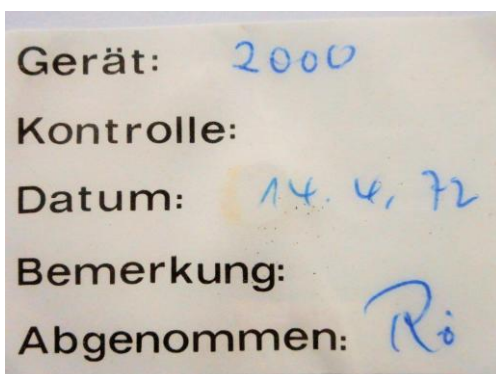 Gerät: 2000
Kontrolle:
Datum: 14. 4. 72
Bemerkung:
Abgenommen: Rö